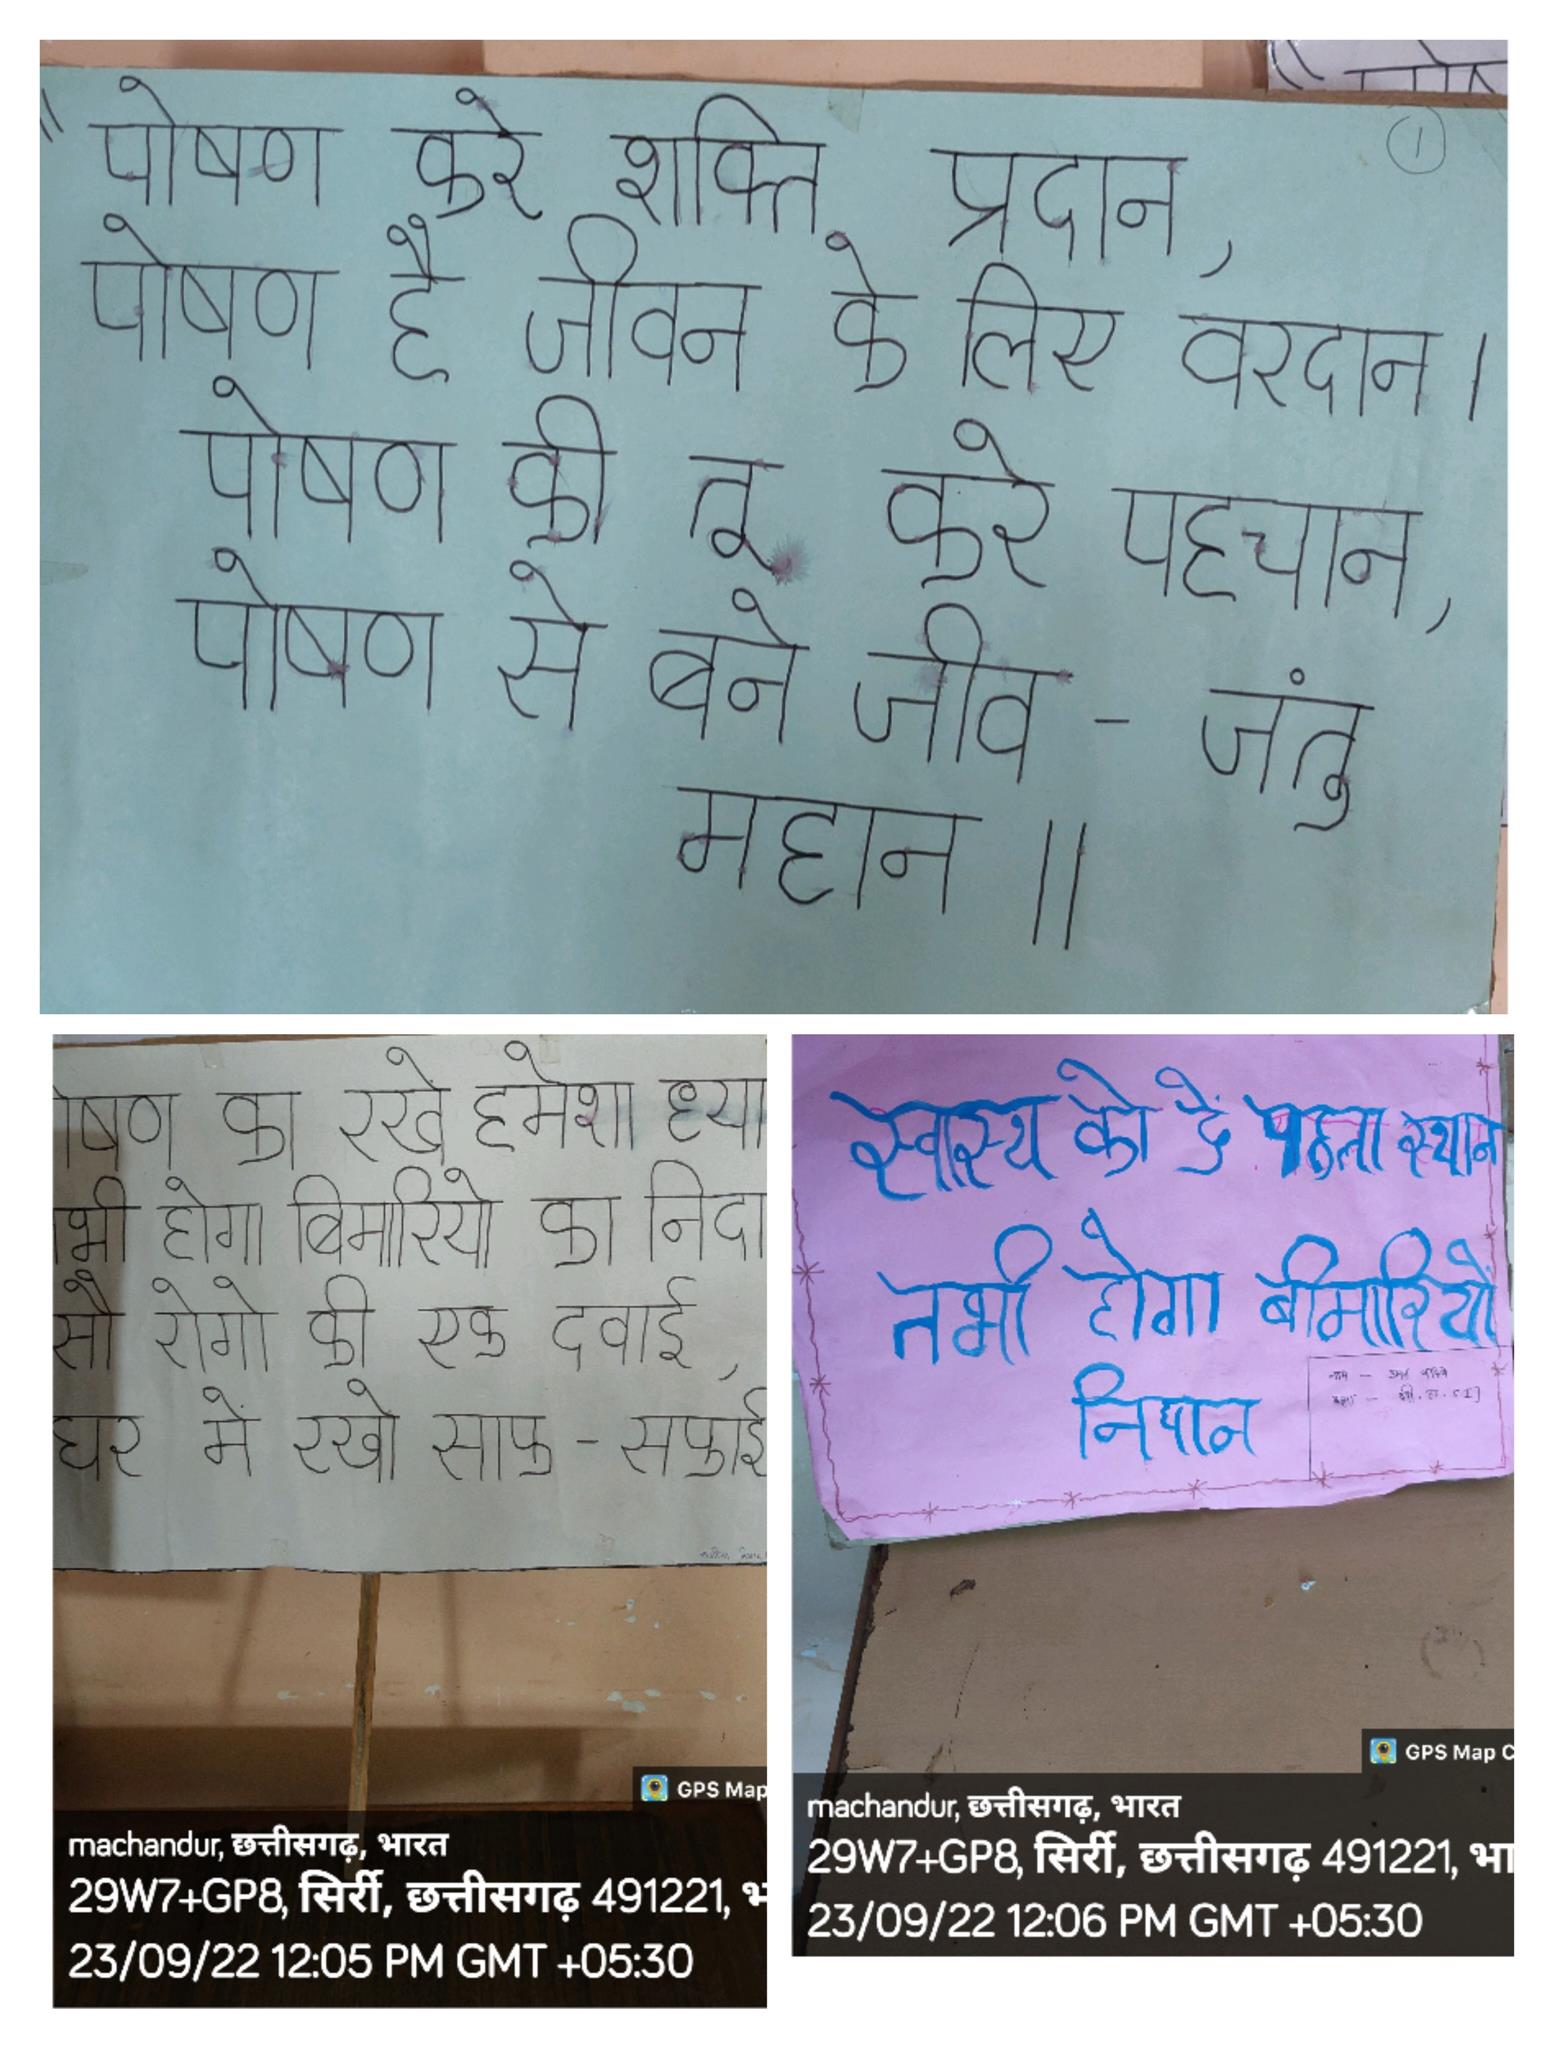 ॥ पोषण करे शक्ति प्रदान,
①
पोषण है जीवन के लिए वरदान।
पोषण की तू करे पहचान,
पोषण से बने जीव - जंतु
महान ॥
षण का रखे हमेशा ध्या
भी होगा बिमारियो का निदा
सौ रोगो की एक दवाई,
घर में रखो साफ - सफाई
GPS Map
machandur, छत्तीसगढ़, भारत
29W7+GP8, सिर्री, छत्तीसगढ़ 491221,
23/09/22 12:05 PM GMT +05:30
स्वास्थ्य को दे पहला स्थान
तभी होगा बीमारियों
निधान
नाम -
कक्षा -
GPS Map C
machandur, छत्तीसगढ़, भारत
29W7+GP8, सिर्री, छत्तीसगढ़ 491221, भा
23/09/22 12:06 PM GMT +05:30